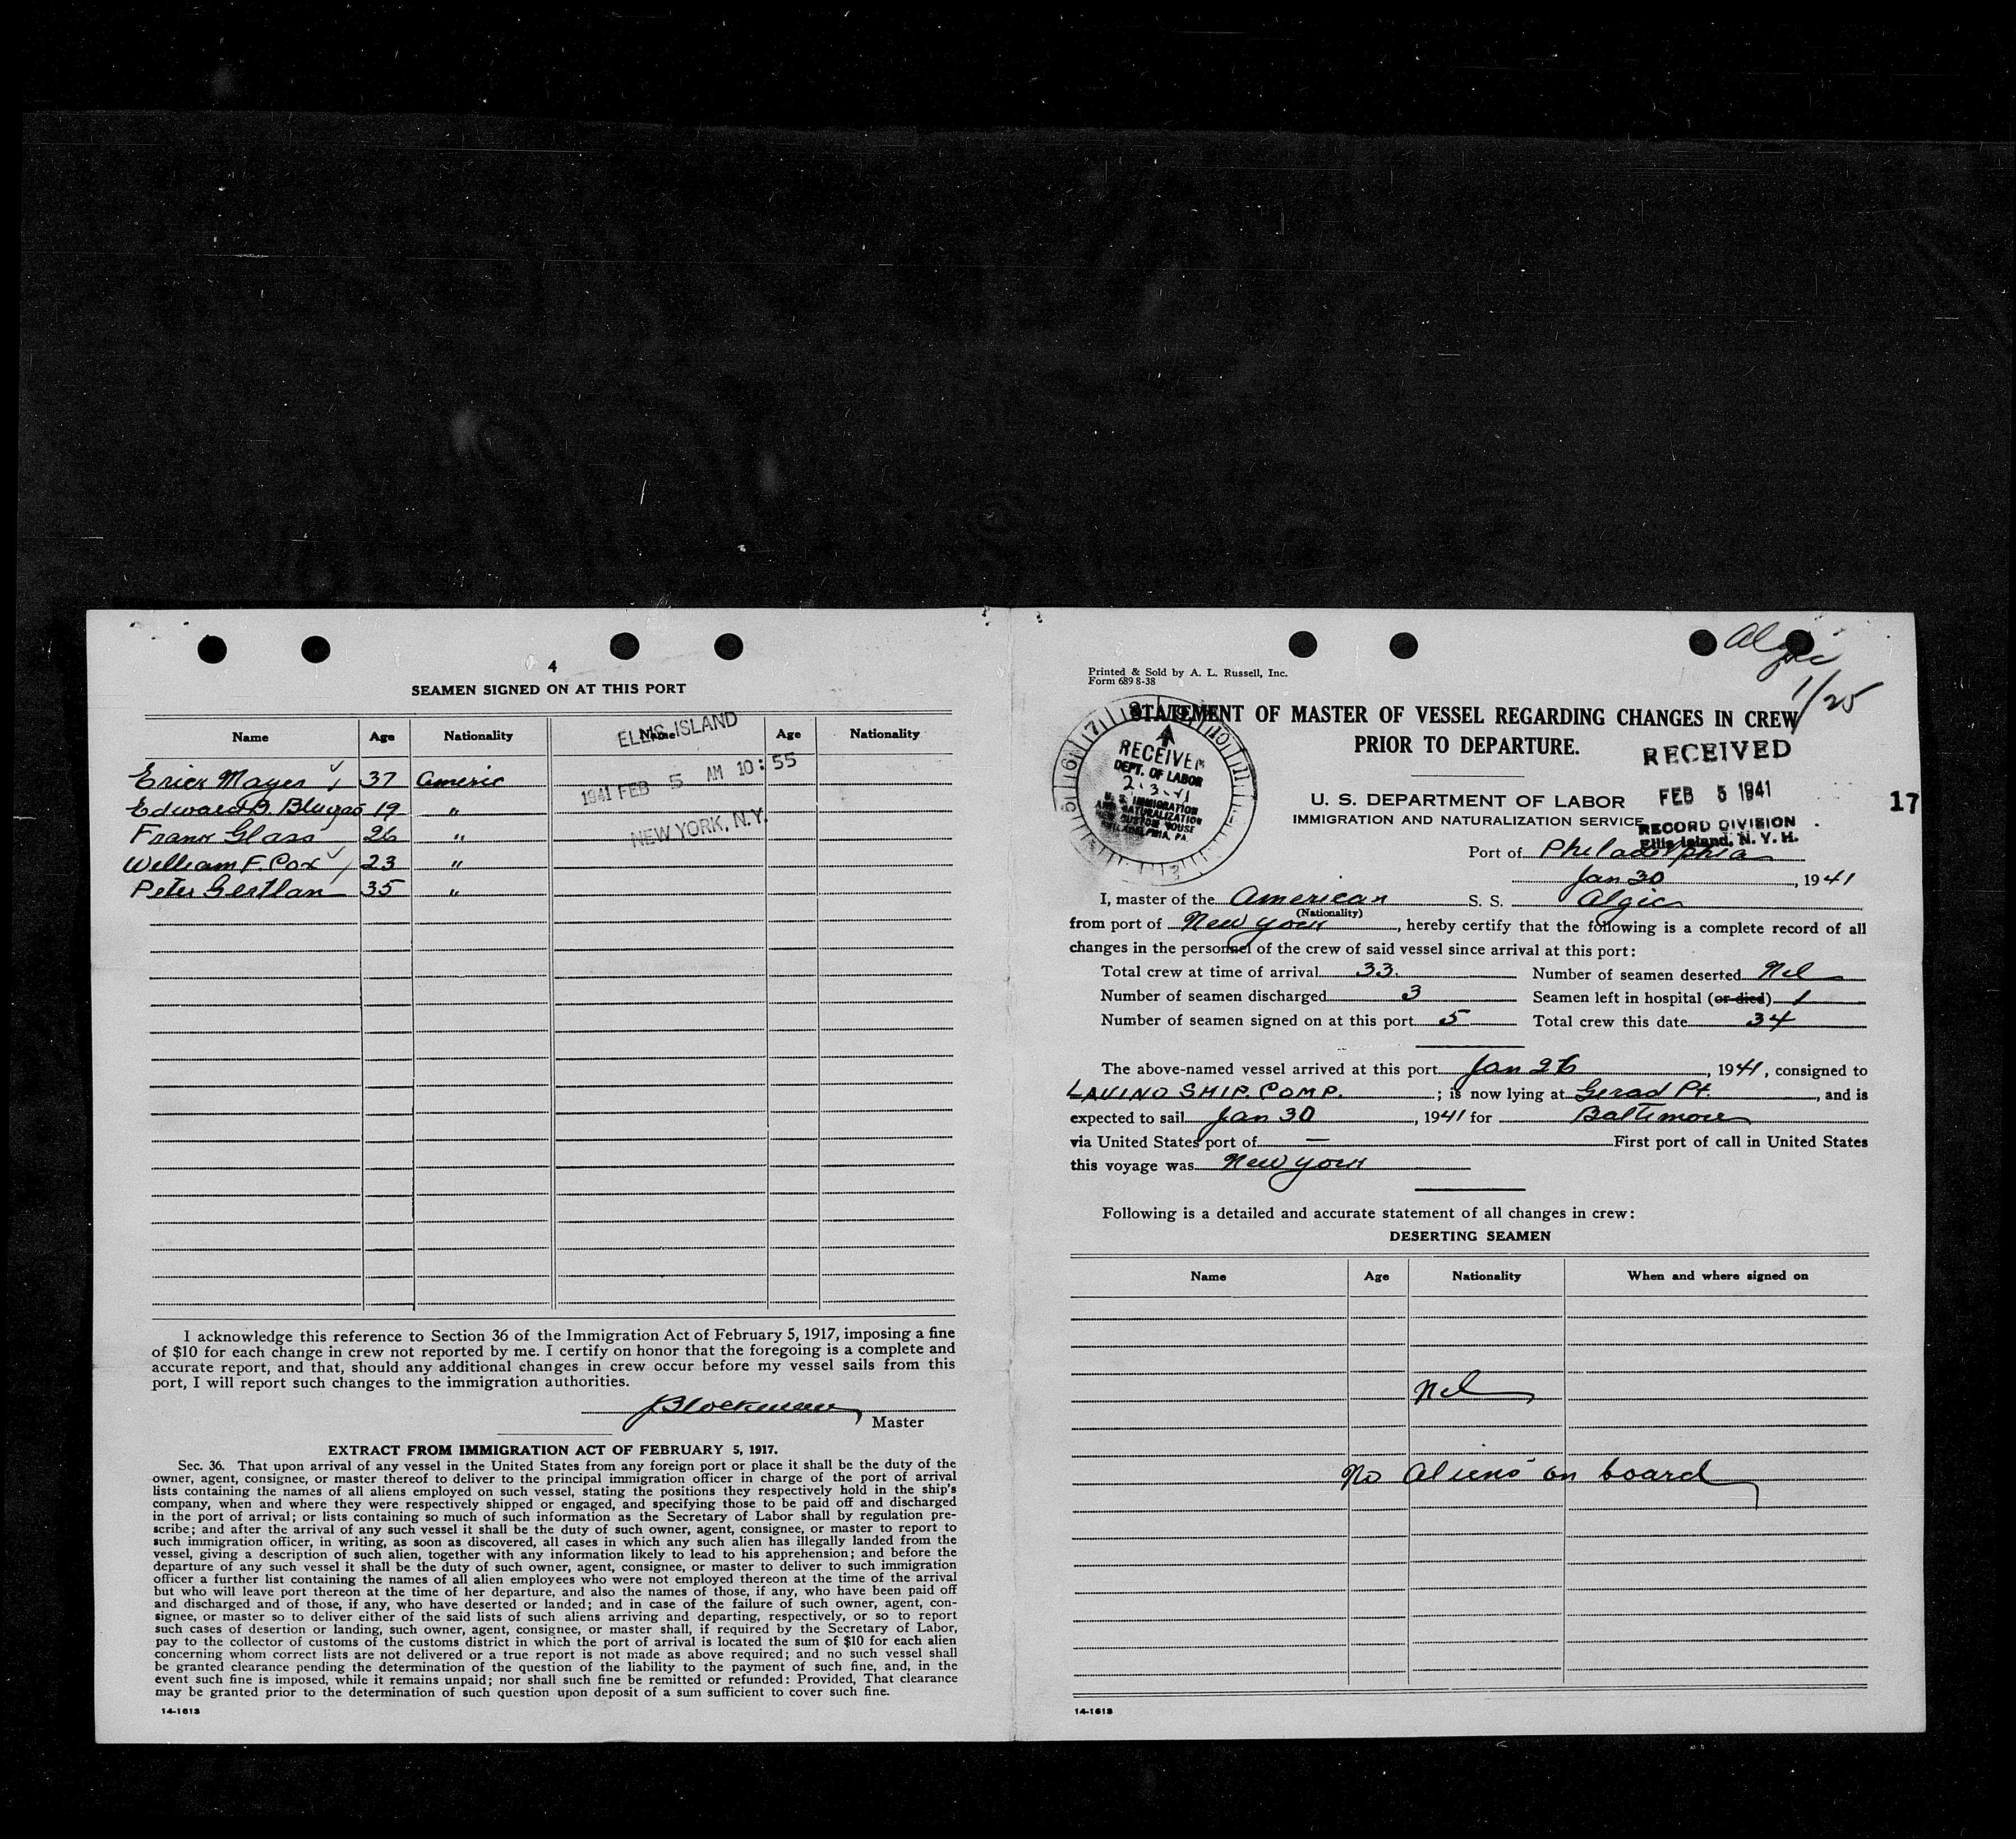 4
SEAMEN SIGNED ON AT THIS PORT
Name Age Nationality Name Age Nationality
ELLIS ISLAND
1941 FEB 5 AM 10:55
NEW YORK, N.Y.
Erick Mayer 37 Americ
Edward B. 19 "
Frank Glass 26 "
William F. Cox 23 "
Peter 35 "
I acknowledge this reference to Section 36 of the Immigration Act of February 5, 1917, imposing a fine
of $10 for each change in crew not reported by me. I certify on honor that the foregoing is a complete and
accurate report, and that, should any additional changes in crew occur before my vessel sails from this
port, I will report such changes to the immigration authorities.
JBlockmann
Master
EXTRACT FROM IMMIGRATION ACT OF FEBRUARY 5, 1917.
Sec. 36. That upon arrival of any vessel in the United States from any foreign port or place it shall be the duty of the
owner, agent, consignee, or master thereof to deliver to the principal immigration officer in charge of the port of arrival
lists containing the names of all aliens employed on such vessel, stating the positions they respectively hold in the ship's
company, when and where they were respectively shipped or engaged, and specifying those to be paid off and discharged
in the port of arrival; or lists containing so much of such information as the Secretary of Labor shall by regulation pre-
scribe; and after the arrival of any such vessel it shall be the duty of such owner, agent, consignee, or master to report to
such immigration officer, in writing, as soon as discovered, all cases in which any such alien has illegally landed from the
vessel, giving a description of such alien, together with any information likely to lead to his apprehension; and before the
departure of any such vessel it shall be the duty of such owner, agent, consignee, or master to deliver to such immigration
officer a further list containing the names of all alien employees who were not employed thereon at the time of the arrival
but who will leave port thereon at the time of her departure, and also the names of those, if any, who have been paid off
and discharged and of those, if any, who have deserted or landed; and in case of the failure of such owner, agent, con-
signee, or master so to deliver either of the said lists of such aliens arriving and departing, respectively, or so to report
such cases of desertion or landing, such owner, agent, consignee, or master shall, if required by the Secretary of Labor,
pay to the collector of customs of the customs district in which the port of arrival is located the sum of $10 for each alien
concerning whom correct lists are not delivered or a true report is not made as above required; and no such vessel shall
be granted clearance pending the determination of the question of the liability to the payment of such fine, and, in the
event such fine is imposed, while it remains unpaid; nor shall such fine be remitted or refunded: Provided, That clearance
may be granted prior to the determination of such question upon deposit of a sum sufficient to cover such fine.
14-1613
Algic
1/25
Printed & Sold by A. L. Russell, Inc.
Form 689 8-38
STATEMENT OF MASTER OF VESSEL REGARDING CHANGES IN CREW
PRIOR TO DEPARTURE.
RECEIVED
DEPT. OF LABOR
2-3-41
U. S. IMMIGRATION
AND NATURALIZATION
NEW CUSTOM HOUSE
PHILADELPHIA, PA.
RECEIVED
FEB 5 1941
RECORD DIVISION
Ellis Island, N. Y. H.
17
U. S. DEPARTMENT OF LABOR
IMMIGRATION AND NATURALIZATION SERVICE
Port of Philadelphia
Jan 30, 1941
I, master of the American S. S. Algic
(Nationality)
from port of New York, hereby certify that the following is a complete record of all
changes in the personnel of the crew of said vessel since arrival at this port:
Total crew at time of arrival 33. Number of seamen deserted Nil
Number of seamen discharged 3 Seamen left in hospital (or died) 1
Number of seamen signed on at this port 5 Total crew this date 34
The above-named vessel arrived at this port Jan 26, 1941, consigned to
LAVINO SHIP. COMP.; is now lying at Gerad Pt., and is
expected to sail Jan 30, 1941 for Baltimore
via United States port of — First port of call in United States
this voyage was New York
Following is a detailed and accurate statement of all changes in crew:
DESERTING SEAMEN
Name Age Nationality When and where signed on
Nil
No Aliens on board
14-1613